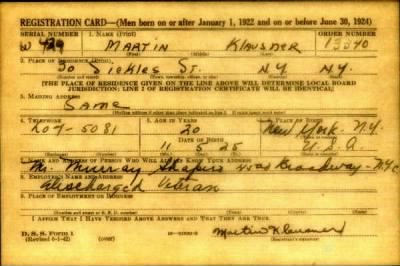 REGISTRATION CARD—(Men born on or after January 1, 1922 and on or before June 30, 1924)
SERIAL NUMBER 1. NAME (Print) ORDER NUMBER
W 429 MARTIN KLAUSNER 13340
(First) (Middle) (Last)
2. PLACE OF RESIDENCE (Print)
30 Sickles St. N.Y. N.Y.
[THE PLACE OF RESIDENCE GIVEN ON THE LINE ABOVE WILL DETERMINE LOCAL BOARD
JURISDICTION; LINE 2 OF REGISTRATION CERTIFICATE WILL BE IDENTICAL]
3. MAILING ADDRESS
Same
4. TELEPHONE 5. AGE IN YEARS 6. PLACE OF BIRTH
LO7-5081 20 New York - N.Y.
DATE OF BIRTH
11 5 25 U.S.A.
7. NAME AND ADDRESS OF PERSON WHO WILL ALWAYS KNOW YOUR ADDRESS
Mr. Murray Shapiro Broadway - NYC
8. EMPLOYER'S NAME AND ADDRESS
Discharged Veteran
9. PLACE OF EMPLOYMENT OR BUSINESS
I AFFIRM THAT I HAVE VERIFIED ABOVE ANSWERS AND THAT THEY ARE TRUE.
D. S. S. Form 1
(Revised 6-1-42) (over) Martin Klausner
(Registrant's signature)